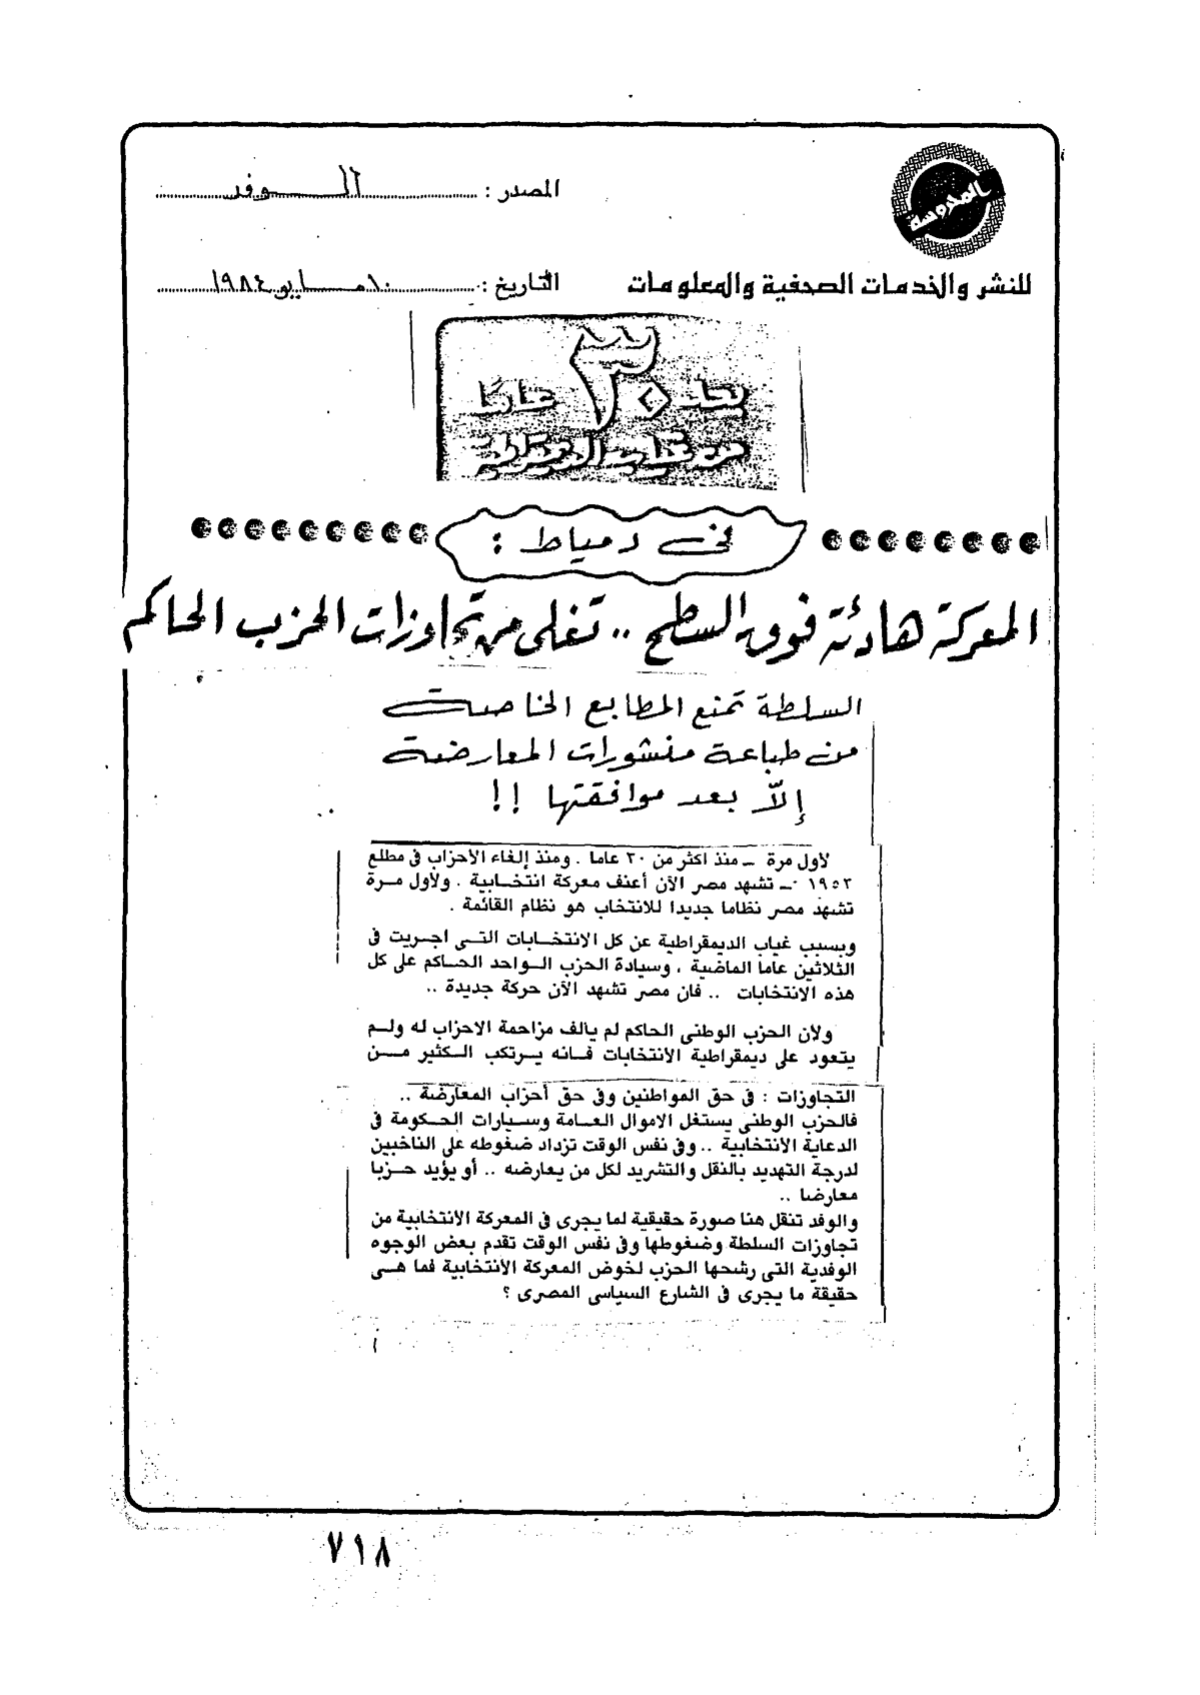 المحروسة
المصدر : الـوفد
للنشر والخدمات الصحفية والمعلومات
التاريخ : ١٠ مـايو ١٩٨٤
بعد ٣٠ عاماً
من غياب الديمقراطية
فى دمياط :
المعركة هادئة فوق السطح .. تغلى من تجاوزات الحزب الحاكم
السلطة تمنع المطابع الخاصة
من طباعة منشورات المعارضة
إلاّ بعد موافقتها !!
لأول مرة ــ منذ اكثر من ٣٠ عاما . ومنذ إلغاء الأحزاب فى مطلع
١٩٥٣ ــ تشهد مصر الآن أعنف معركة انتخـابية . ولأول مـرة
تشهد مصر نظاما جديدا للانتخاب هو نظام القائمة .
وبسبب غياب الديمقراطية عن كل الانتخـابات التـى اجـريت فى
الثلاثين عاما الماضية ، وسيادة الحزب الـواحد الحـاكم على كل
هذه الانتخابات .. فان مصر تشهد الآن حركة جديدة ..
ولأن الحزب الوطنى الحاكم لم يألف مزاحمة الاحزاب له ولـم
يتعود على ديمقراطية الانتخابات فـانه يـرتكب الـكثير مـن
التجاوزات : فى حق المواطنين وفى حق أحزاب المعارضة ..
فالحزب الوطنى يستغل الاموال العـامة وسـيارات الحـكومة فى
الدعاية الانتخابية .. وفى نفس الوقت تزداد ضغوطه على الناخبين
لدرجة التهديد بالنقل والتشريد لكل من يعارضه .. أو يؤيد حـزبا
معارضا ..
والوفد تنقل هنا صورة حقيقية لما يجرى فى المعركة الانتخابية من
تجاوزات السلطة وضغوطها وفى نفس الوقت تقدم بعض الوجوه
الوفدية التى رشحها الحزب لخوض المعركة الانتخابية فما هـى
حقيقة ما يجرى فى الشارع السياسى المصرى ؟
٧١٨